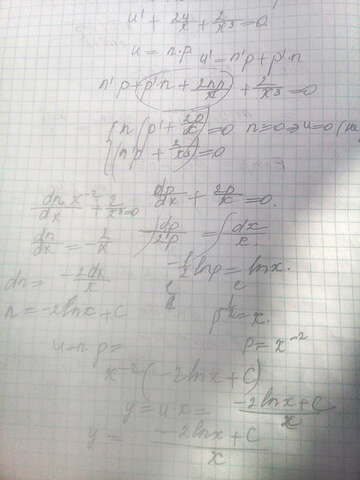 u' + 2u/x + 2/x³ = 0
u = n·p u' = n'p + p'·n
n'p + p'·n + 2np/x + 2/x³ = 0
{ n(p' + 2p/x) = 0 n = 0 ⇒ u = 0
n'p + 2/x³ = 0
dn/dx x⁻² + 2/x³ = 0 dp/dx + 2p/x = 0.
dn/dx = -2/x ∫dp/2p = ∫dx/x
dn = -2dx/x -1/2 lnp = lnx.
n = -2lnx + C = x.
u = n·p = p = x⁻²
x⁻²(-2lnx + C)
y = u·x = -2lnx + C / x
y = -2lnx + C / x